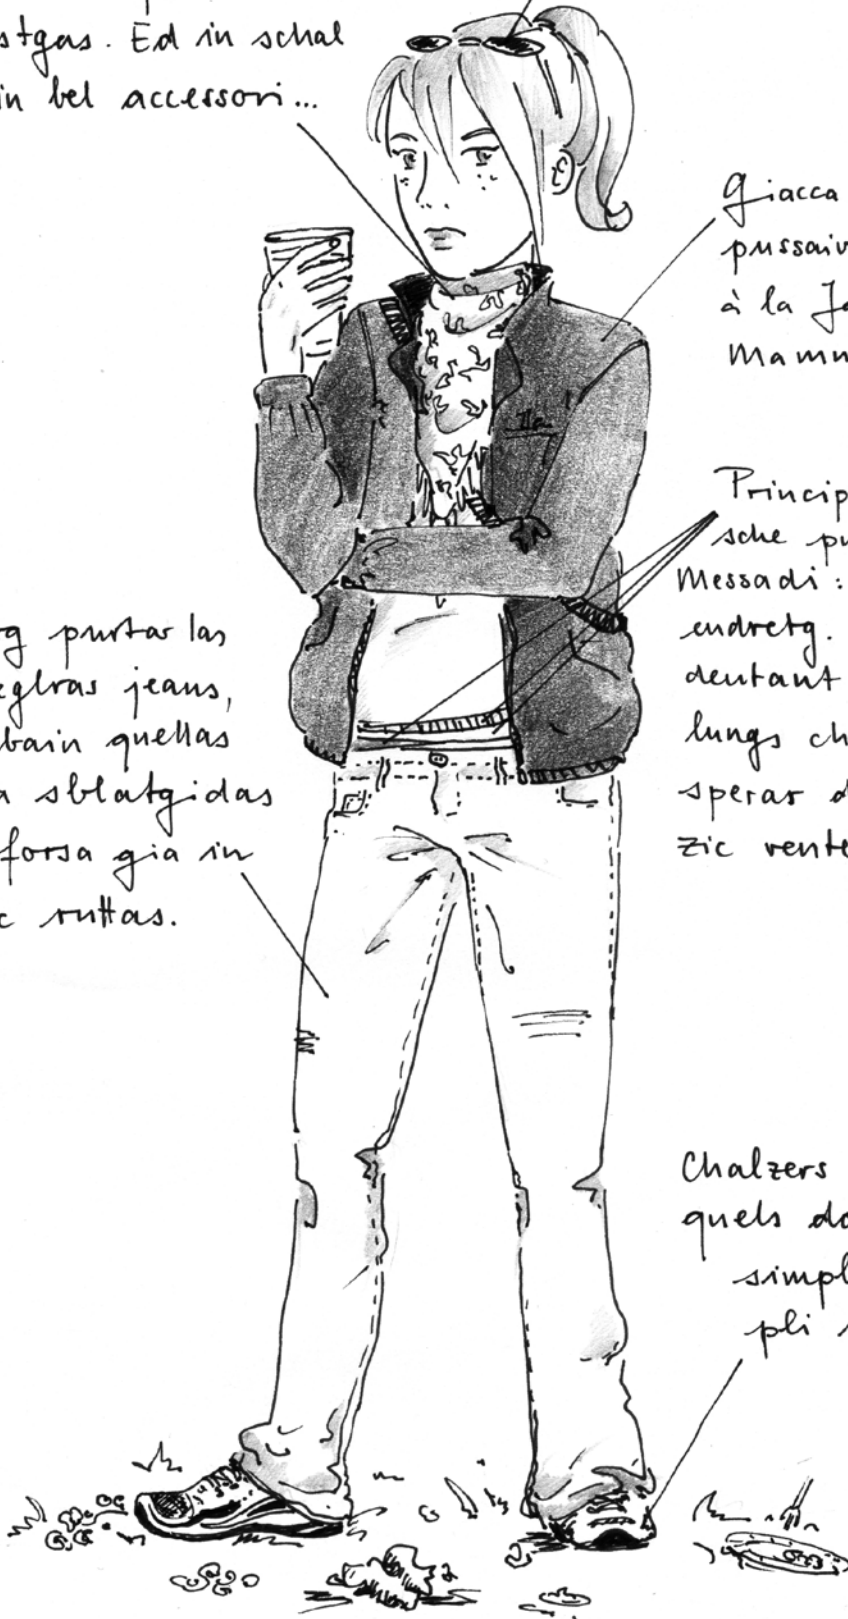 stgas. Ed in schal
in bel accessori...
Giacca
pussaiv
à la Ja
Mamm
Princip
sche pu
Messadi:
endretg.
dentant
lungs ch
sperar d
zic rente
g purtar las
eglras jeans,
bain quellas
a sblatgidas
forsa gia in
c ruttas.
Chalzers
quels da
simpl
pli s